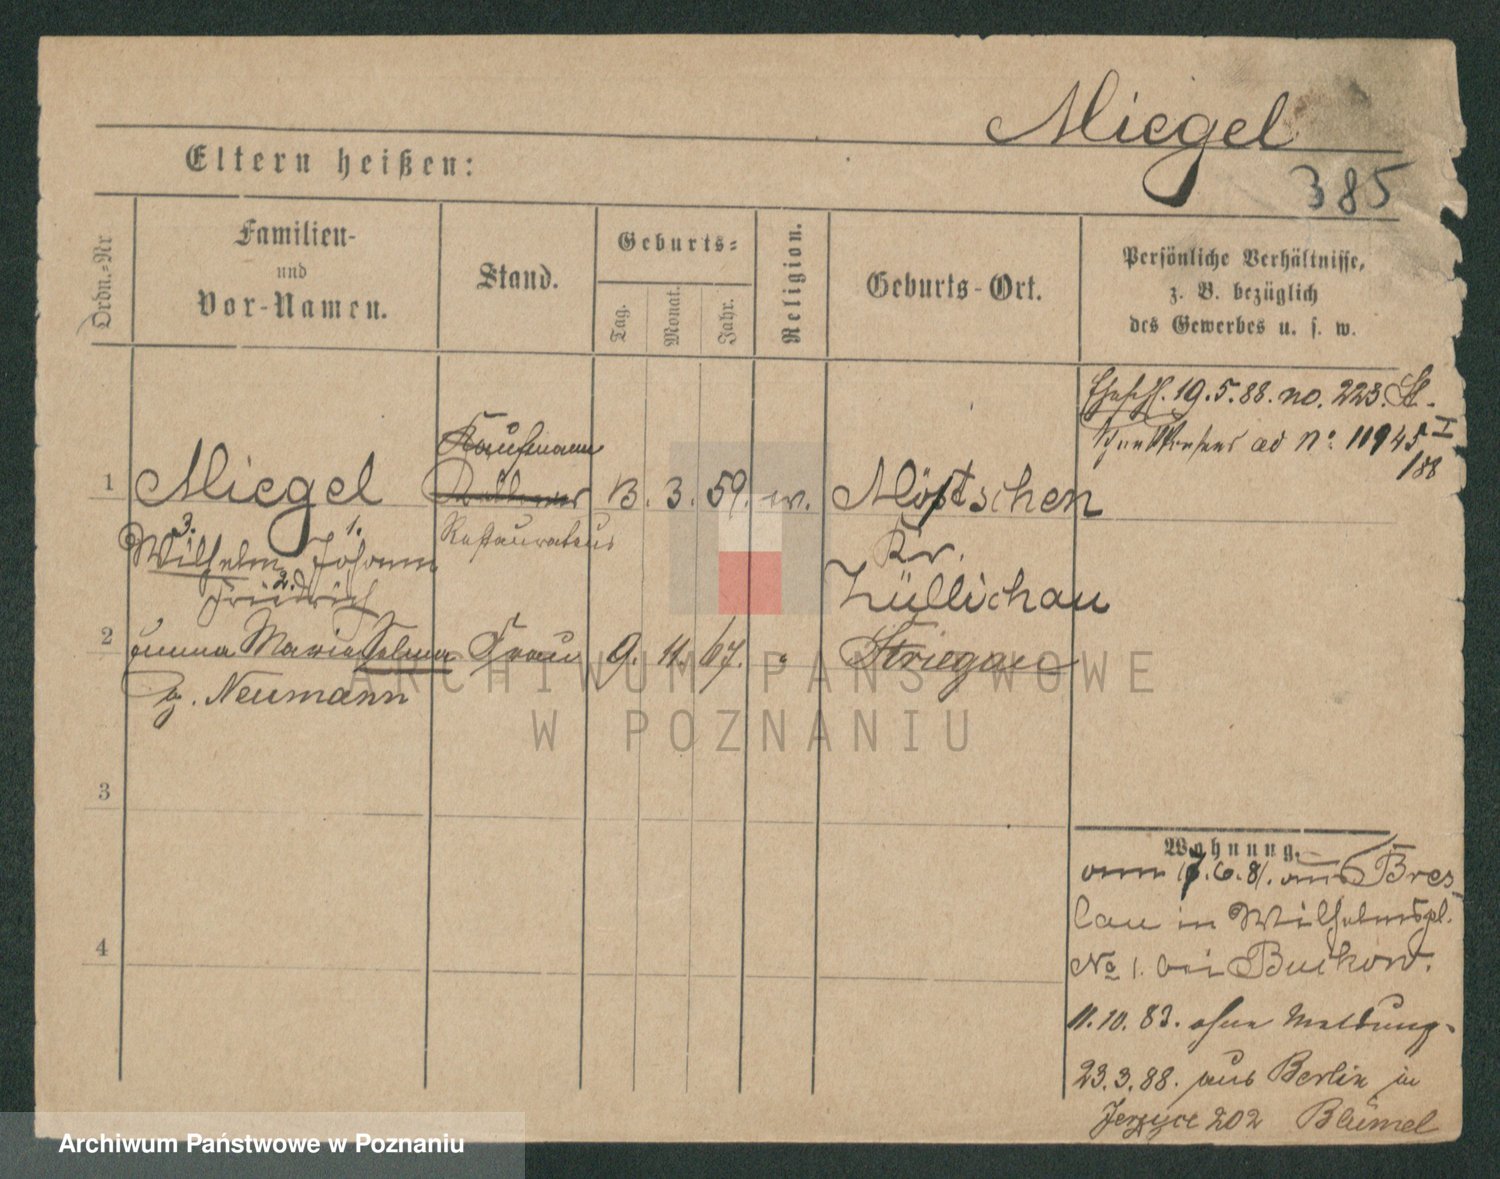 Miegel
385
Eltern heißen:
Ordn.=Nr
Familien-
und
Vor-Namen.
Stand.
Geburts=
Tag.
Monat.
Jahr.
Religion.
Geburts-Ort.
Persönliche Verhältnisse,
z. B. bezüglich
des Gewerbes u. s. w.
19.5.88. no. 223. St.
ad No 11945 I
188
Kaufmann
1 Miegel 13. 3. 59. ev. Möstschen
Restaurateur
3. 1.
Wilhelm Johann
Kr.
2.
Friedrich
Züllichau
2 Emma Marie Selma Frau 9. 11. 67. " Striegau
g. Neumann
3
4
Wohnung.
vom 17.6.81. aus Bres-
lau in Wilhelmspl.
No 1. bei Buchow.
11.10.83. ohne Meldung.
23.3.88. aus Berlin in
Jerzyce 202 Blümel
ARCHIWUM PAŃSTWOWE
W POZNANIU
Archiwum Państwowe w Poznaniu